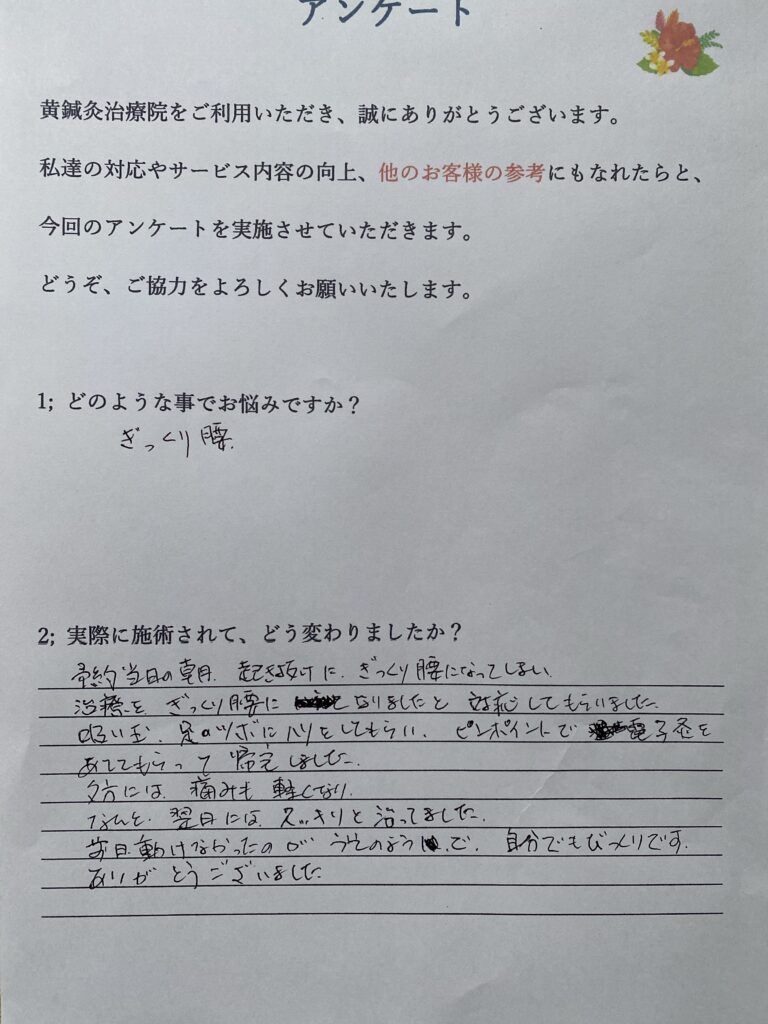 アンケート
黄鍼灸治療院をご利用いただき、誠にありがとうございます。
私達の対応やサービス内容の向上、他のお客様の参考にもなれたらと、
今回のアンケートを実施させていただきます。
どうぞ、ご協力をよろしくお願いいたします。
1; どのような事でお悩みですか？
ぎっくり腰.
2; 実際に施術されて、どう変わりましたか？
予約当日の朝、起き抜けに、ぎっくり腰になってしまい、
治療を ぎっくり腰に なりましたと 対応してもらいました.
吸い玉、足のツボにハリをしてもらい、ピンポイントで 電子灸を
あててもらって 帰宅しました.
夕方には、痛みも 軽くなり、
なんと、翌日には、スッキリと 治ってました.
昨日動けなかったのが うそのようで、自分でもびっくりです.
ありがとうございました.